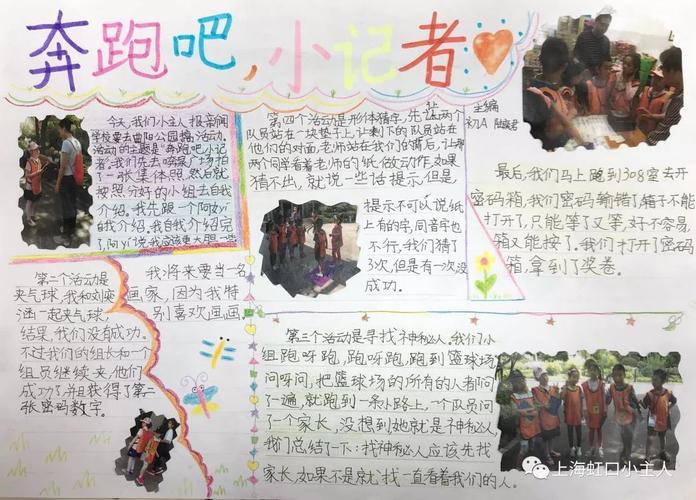 奔跑吧,小记者
今天,我们小主人报新闻
学校要去曲阳公园搞活动,
活动的主题是"奔跑吧小记
者"。我们先去喷泉广场拍
了一张集体照,然后就
按照分好的小组去自我
介绍。我先跟一个阿姨
自我介绍。我自我介绍完
了,阿姨说我应该更大胆一些
我将来要当一名
画家,因为我特
别喜欢画画
第二个活动是
夹气球,我和刘奕
涵一起夹气球,
结果,我们没有成功。
不过我们的组长和一个
组员继续夹,他们
成功了,并且获得了第二
张密码数字。
第四个活动是形体猜字,先让两个
队员站在一块垫子上,让剩下的队员站在
他们的对面,老师站在我们的背后,让那
两个同学看着老师的纸做动作。如果
猜不出,就说一些话提示,但是
提示不可以说纸
上有的字,同音字也
不行。我们猜了
3次,但是有一次没
成功。
第三个活动是寻找神秘人,我们小
组跑呀跑,跑呀跑,跑到篮球场
问呀问,把篮球场的所有的人都问
了一遍,就跑到一条小路上,一个队员问
了一个家长,没想到她就是神秘人,
我们总结了一下:找神秘人应该先找
家长,如果不是就找一直看着我们的人。
主编
初A
最后,我们马上跑到308室去开
密码箱,我们密码输错了,箱子不能
打开了,只能等了又等,好不容易,
箱又能按了。我们打开了密码
箱,拿到了奖卷。
上海虹口小主人